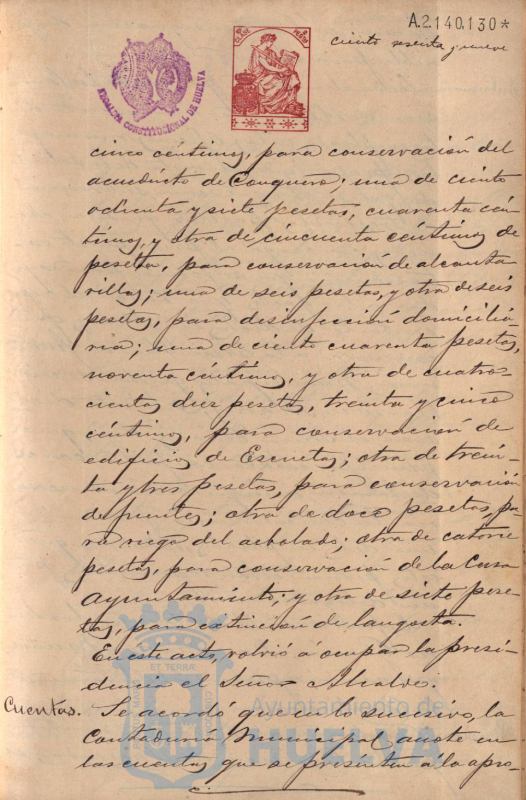 A.2.140.130*
ciento sesenta y nueve
ALCALDIA CONSTITUCIONAL DE HUELVA
cinco céntimos, para conservación del
acueducto de Conquero; una de ciento
ochenta y siete pesetas, cuarenta cén-
timos, y otra de cincuenta céntimos de
peseta, para conservación de alcanta-
rillas; una de seis pesetas, y otra de seis
pesetas, para desinfección domicilia-
ria; una de ciento cuarenta pesetas,
noventa céntimos, y otra de cuatro-
cientas diez pesetas, treinta y cinco
céntimos, para conservación de
edificios de Escuelas; otra de trein-
ta y tres pesetas, para conservación
de fuentes; otra de doce pesetas, pa-
ra riego del arbolado; otra de catorce
pesetas, para conservación de la Casa
Ayuntamiento; y otra de siete pese-
tas, para extinción de langosta.
En este acto, volvió á ocupar la presi-
dencia el Señor Alcalde.
Cuentas. Se acordó que en lo sucesivo, la
Contaduría Municipal, anote en
las cuentas que se presentan a la apro-
Ayuntamiento de
HUELVA